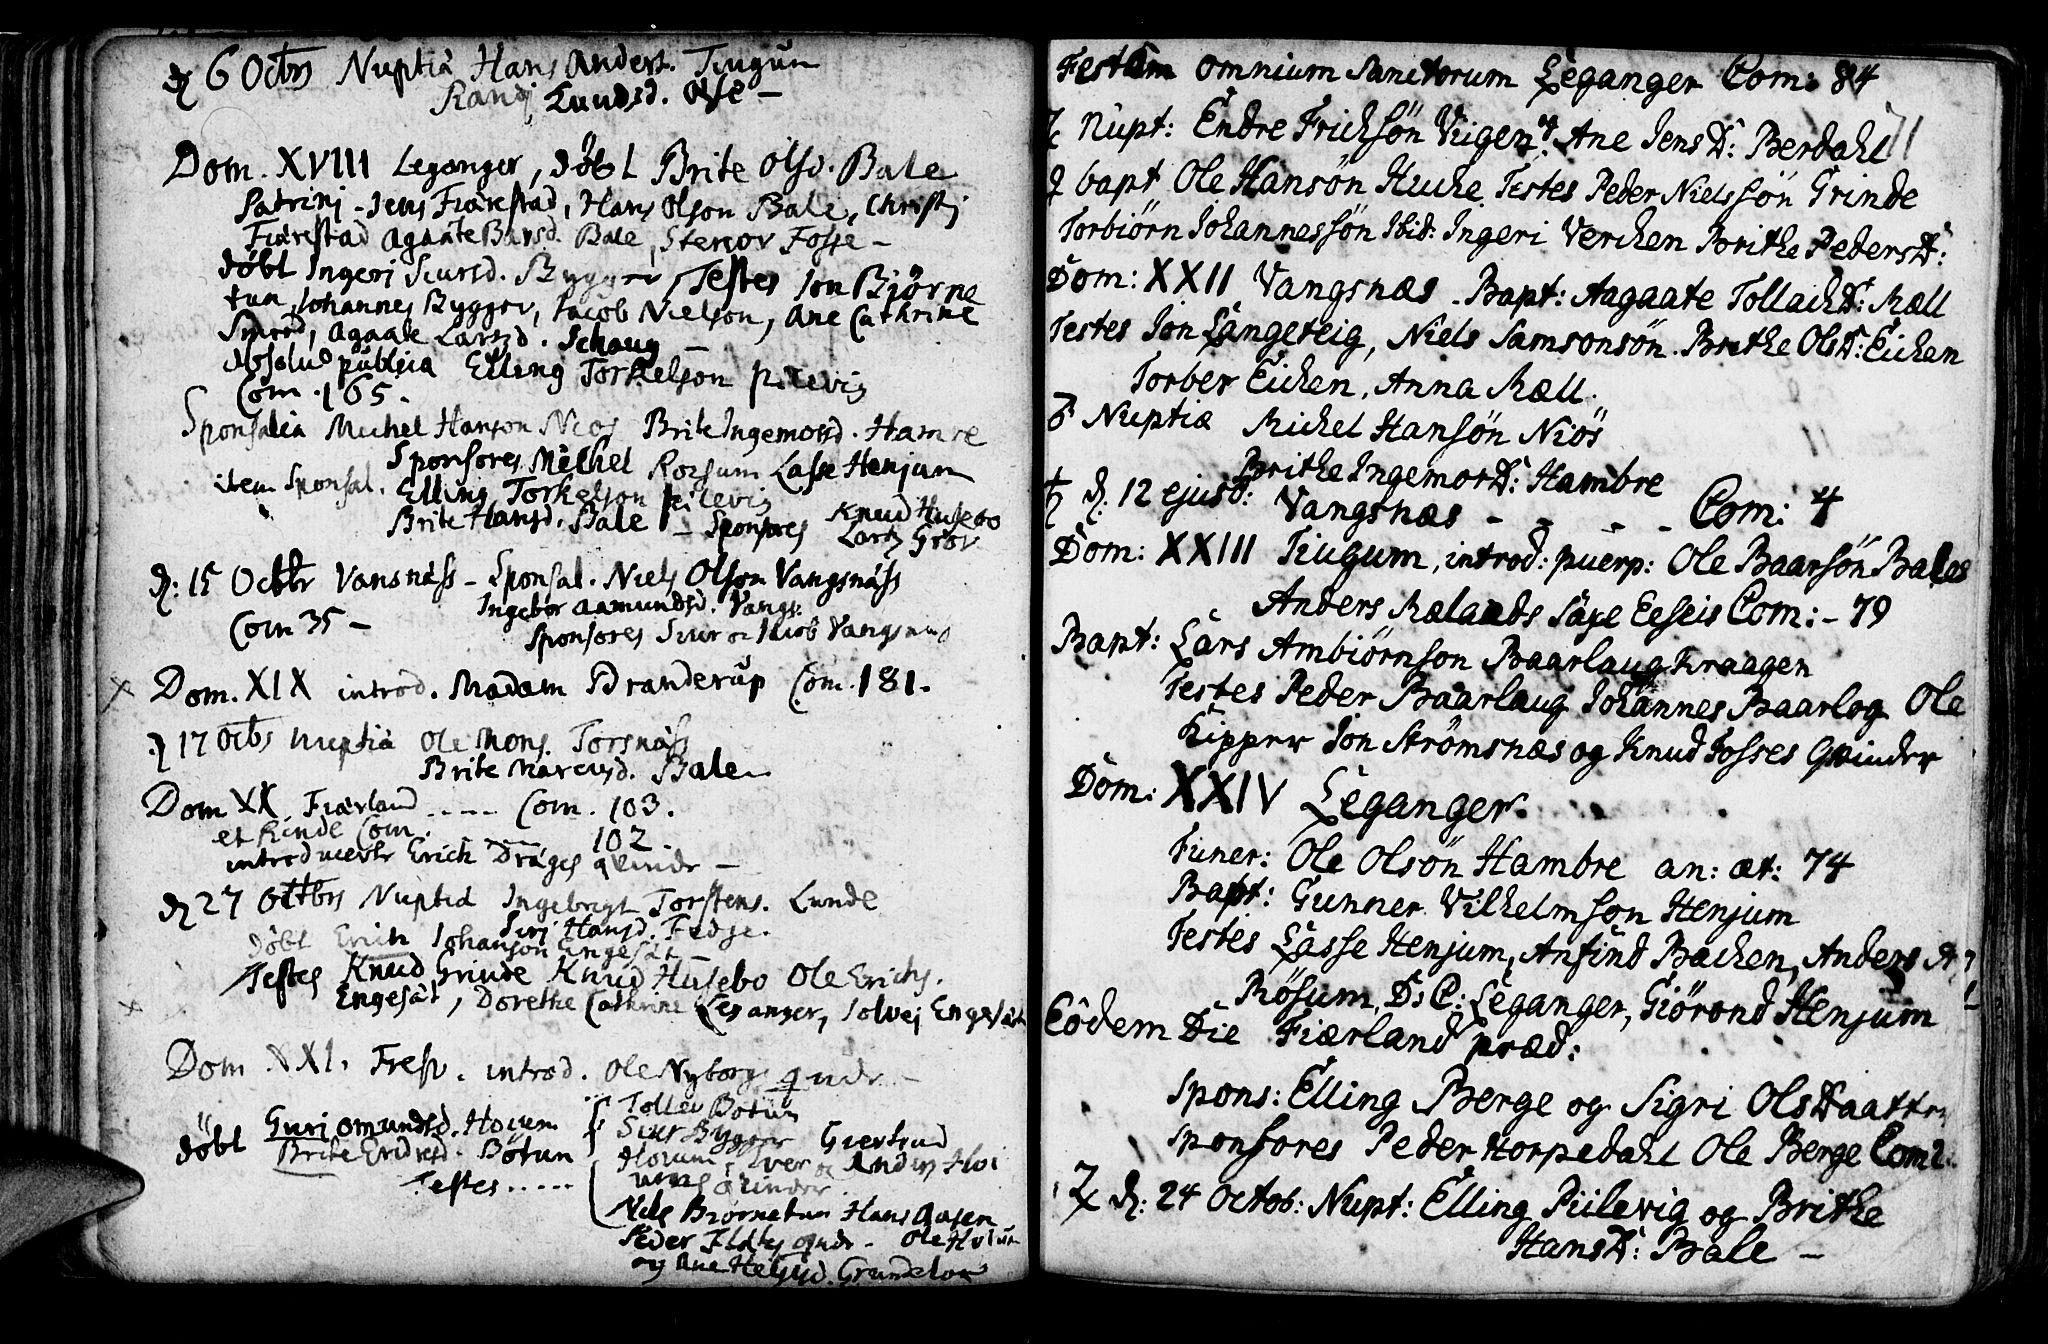 d. 6 Octbs Nuptiæ Hans Anders. Tiugum
Randj Lundsd. Ose –
Dom. XVIII Leganger, döbt Brite Olsd. Bale
Patrinj – Jens Fiærestad, Hans Olson Bale, Christj
Fiærestad Agaate Barsd. Bale, Steenor Fosse –
döbt Ingerj Siursd. Bygger, Testes Jon Biörne
tun, Johannes Bygger, Jacob Nielson, Ane Cathrine
Smord, Agaate Larsd. Schaug –
Absolut publica Elling Torkelson Pilevig
Com. 165.
Sponsalia Michel Hanson Nios Brite Ingemorsd. Hamre
Sponsores Michel Röesum Lasse Henjum
item Sponsal. Elling Torkelson Pilevig
Brite Hansd. Bale – Sponsores Knud Husebo
Lars Grov
d: 15 Octbr Vansnäss – Sponsal. Niels Olson Vangsnäss
Ingebor Aamundsd. Vangs:
Com 35 – Sponsores Siur oc Jacob Vangsnæs
Dom. XIX introd. Madam Branderup Com. 181.
d 17 Octbs Nuptiæ Ole Mons. Torsnäss
Brite Marcusd. Bale
Dom XX. Fiærland .... Com. 103.
et Rinde Com. 102
introducerte Erich Dragess qvinde –
d 27 Octbrs Nuptiæ Ingebrigt Torstens. Lunde
Sirj Hansd. Fedse.
döbt Erich Johanson Engesæt –
Testes Knud Grinde Knud Husebo Ole Erichs.
Engesät, Dorethe Cathrine Leganger, Solvej Engesæt
Dom XXI. Fresv. introd. Ole Nyborgs qvinde –
Tollev Botun
döbt Guri Omundsd. Hovem Siur Bygger Giertrud
Brite Eridsd. Bötun Hovum, Iver oc Anders Hov
Testes ..... ums qvinder.
Niels Biornetun Hans Aasen
Peder Flates qvinde – Ole Hovum
og Ane Helsjd. Grundelon
Festum omnium Sanctorum Leganger Com: 84
Nupt: Endre Frichsön Viigen og Ane JensD: Berdahl
bapt Ole Hansön Huche Testes Peder Nielssön Grinde
Torbiörn Johannessön Ibid: Ingeri Verchen Brithe PedersD:
Dom: XXII Vangsnæs – Bapt: Aagaate TollachD: Mæll
Testes Jon Längeteig, Niels Samsonsön. Brethe OlsD: Eichen
Torber Eichen, Anna Mæll.
♂ Nuptiæ Michel Hansön Niös
Brithe IngemorD: Hambre
♄ d: 12 ejusd: Vangsnæs – – – – Com: 4
Dom: XXIII Tiugum, introd: puerp: Ole Baarsön Bales
Anders Mælands Säxe Eeseis Com: – 79
Bapt: Lars Ambiörnson Baarlaug Kraagen
Testes Peder Baarlaug Johannes Baarlog Ole
Kipper Jon Strömsnæs og Knud Fosses Qvinder
Dom: XXIV Leganger.
Funer: Ole Olsön Hambre an: æt: 74
Bapt: Gunner Vilhelmson Henjum
Testes Lasse Henjum, Anfind Bachen, Anders
Rösum, D: C: Leganger, Giörond Henjum
Eôdem Die Fiærland præd:
Spons: Elling Berge og Sigri OlsDaatter
Sponsores Peder Horpedahl Ole Berge Com
♃ d: 24 Octob: Nupt: Elling Piilevig og Brithe
HansD: Bale –